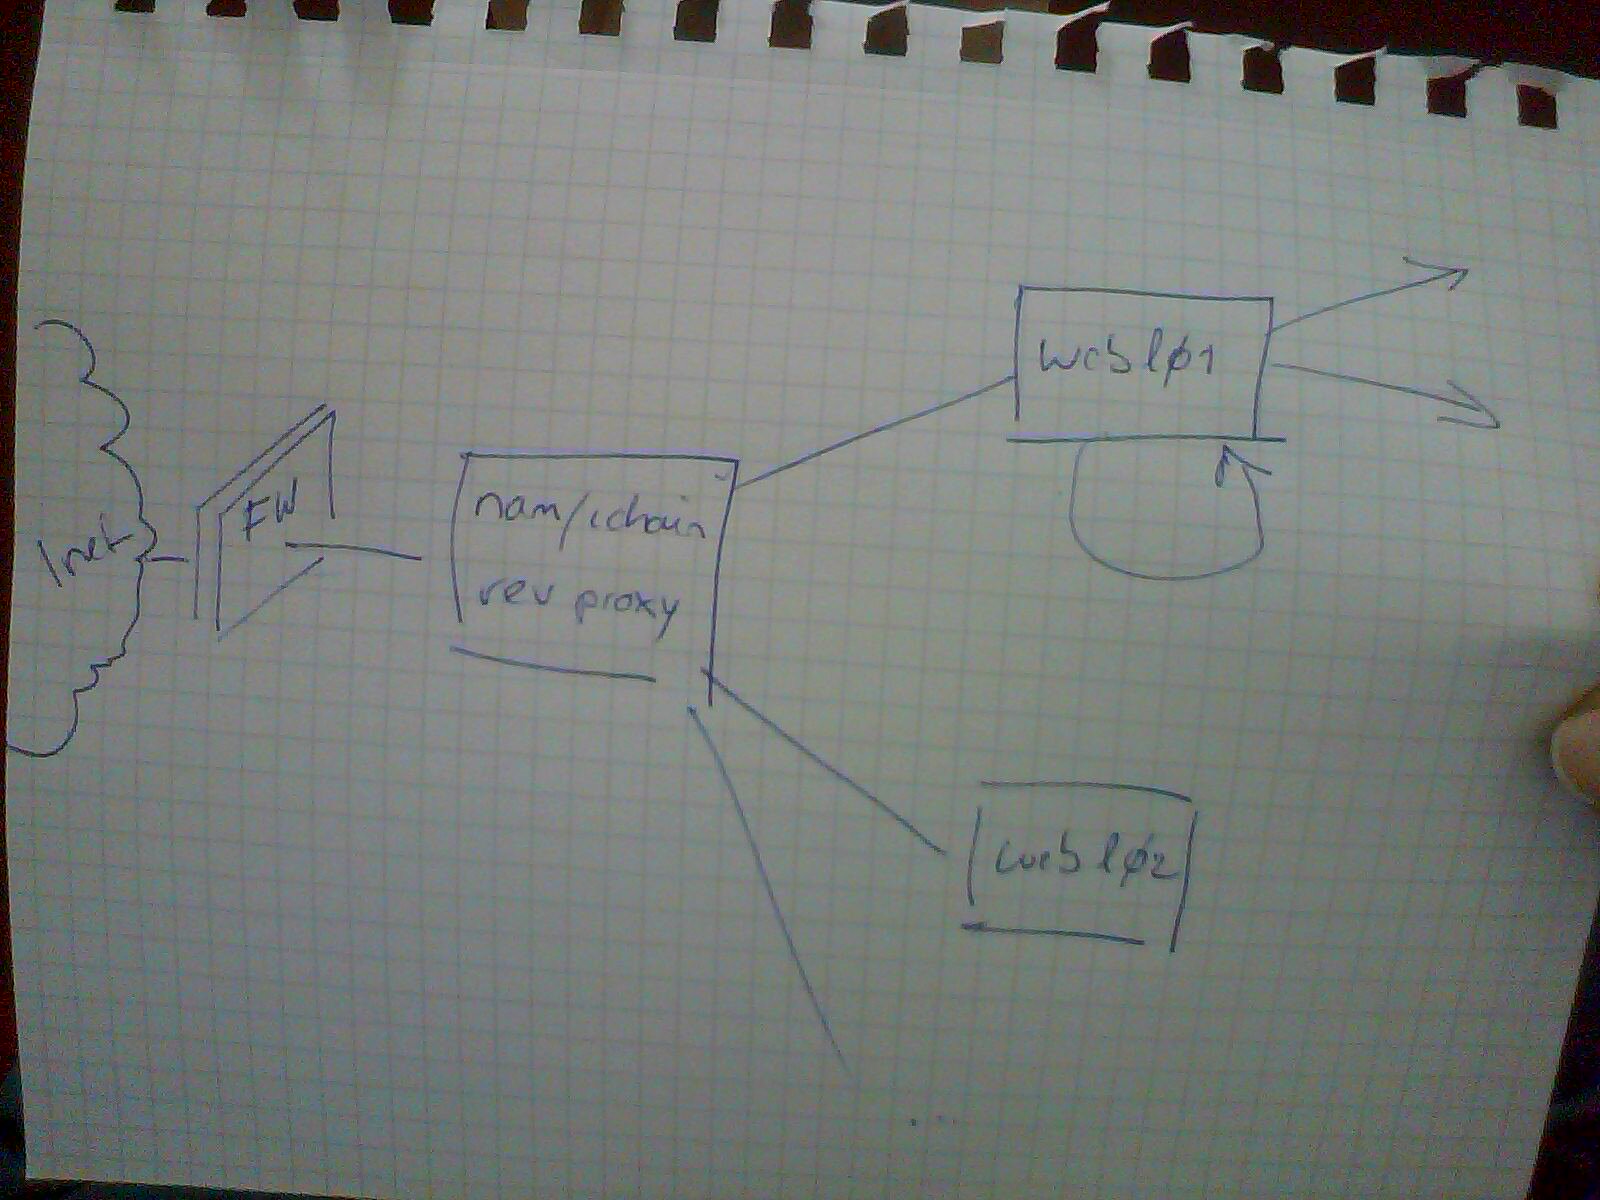 Inet
FW
nam/ichain
rev proxy
webl01
webl02
....